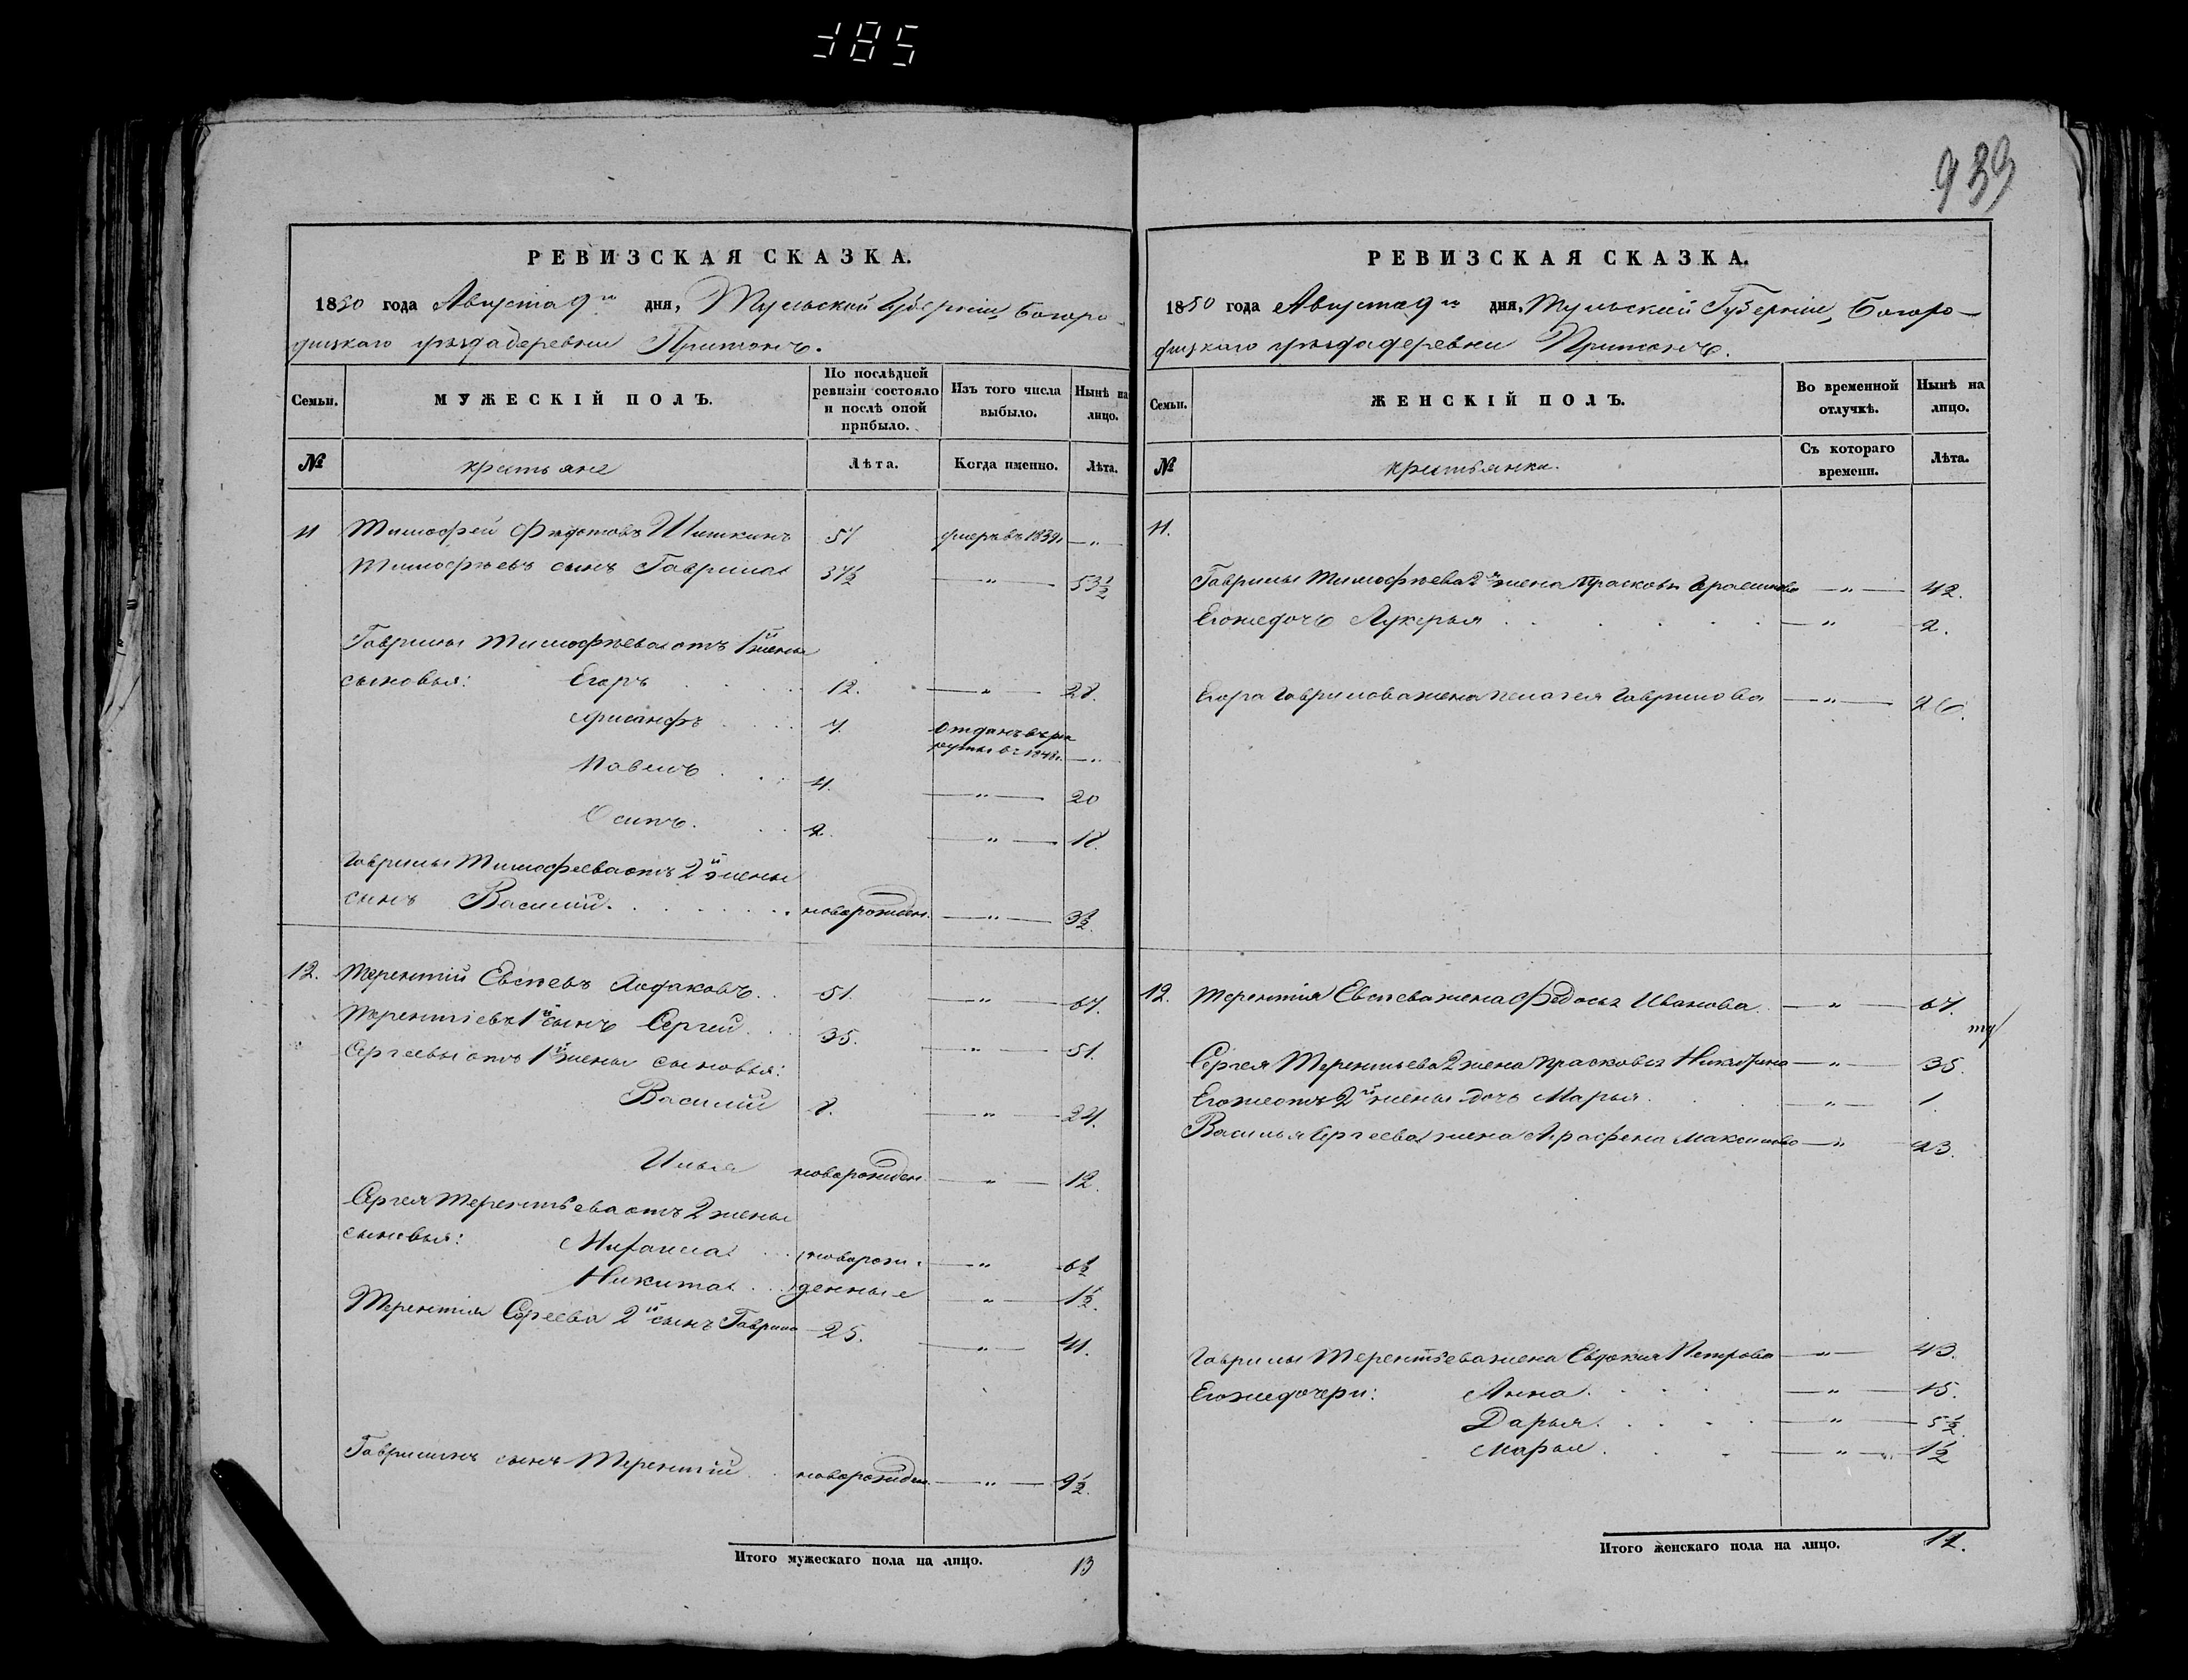 385
939
РЕВИЗСКАЯ СКАЗКА.
1850 года Августа 9го дня, Тульской Губернии, Богоро-
дицкаго уѣзда деревни
Семьи. МУЖЕСКІЙ ПОЛЪ. По послѣдней ревизіи состояло и послѣ оной прибыло. Изъ того числа выбыло. Нынѣ на лицо.
№ крестьяне Лѣта. Когда именно. Лѣта.
11 Тимофей Федотовъ Шишкинъ 57 умеръ въ 1839г. — „ —
Тимофѣевъ сынъ Гаврила 37½ — „ — 53½
Гаврилы Тимофѣева отъ 1й жены
сыновья: Егоръ 12. — „ — 28.
7. отданъ въ рекруты въ 1848г. — „
Павелъ 4. — „ — 20
Осипъ. 2. — „ — 18.
Гаврилы Тимофеева отъ 2й жены
сынъ Василий. новорожден. — „ — 3½
12. Терентий Евсѣевъ 51. — „ — 67.
Терентіевъ 1й сынъ Сергей 35. — „ — 51.
Сергеевы отъ 1й жены сыновья:
Василий 8. — „ — 24.
Илья новорожден. — „ — 12.
Сергея Терентьева отъ 2 жены
сыновья: новорож- — „ — 6½
Никита денные „ — 1½.
Терентия 2й сынъ Гаврила 25. — „ — 41.
Гаврилинъ сынъ Терентий новорожден. — „ — 9½.
Итого мужескаго пола на лицо. 13
РЕВИЗСКАЯ СКАЗКА.
1850 года Августа 9го дня, Тульской Губерніи, Богоро-
дицкаго уѣзда деревни
Семьи. ЖЕНСКІЙ ПОЛЪ. Во временной отлучкѣ. Нынѣ на лицо.
№ крестьянки. Съ котораго времени. Лѣта.
11.
Гаврилы Тимофѣева 2я жена Прасковья — „ — 42.
Его же дочь Лукерья — „ 2.
Егора Гаврилова жена Пелагея Гаврилова — „ — 26.
12. Терентия Евсѣева жена Федосья Иванова — „ — 67.
Сергея Терентьева 2 жена Прасковья — „ — 35.
Его же отъ 2й жены дочь Марья — „ — 1.
Василья Сергеева жена Аграфена Максимова — „ 23.
Гаврилы Терентьева жена Евдокия Петрова — „ — 43.
Его же дочери: Анна. — „ — 15.
Дарья. — „ — 5½
Марья. — „ — 1½
Итого женскаго пола на лицо. 11.